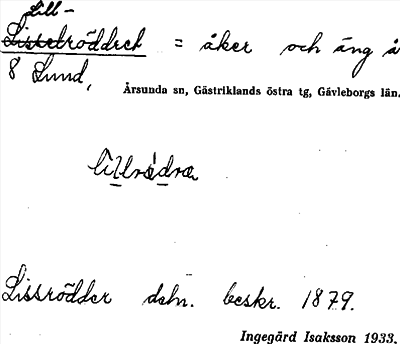 Lill-
Listelröddret = åker och äng å
8 Lund,
Årsunda sn, Gästriklands östra tg, Gävleborgs län.
Lissrödder dehn. beskr. 1879.
Ingegärd Isaksson 1933.